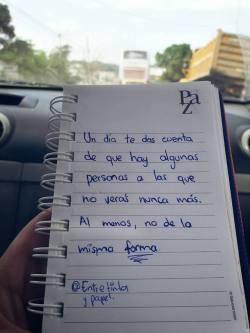 Paz
Un día te das cuenta
de que hay algunas
personas a las que
no verás nunca más.
Al menos, no de la
misma forma
@Entre tinta
y papel.